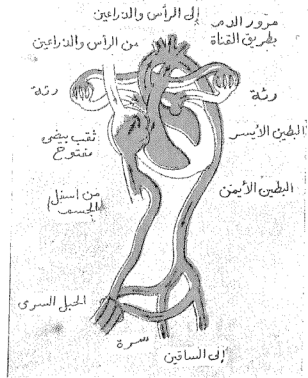 إلى الرأس والذراعين
مرور الدم
بطريق القناة
من الرأس والذراعين
رئة
رئة
ثقب بيضي
مفتوح
البطين الأيسر
من اسفل
الجسم
البطين الأيمن
الحبل السرى
سرة
إلى الساقين